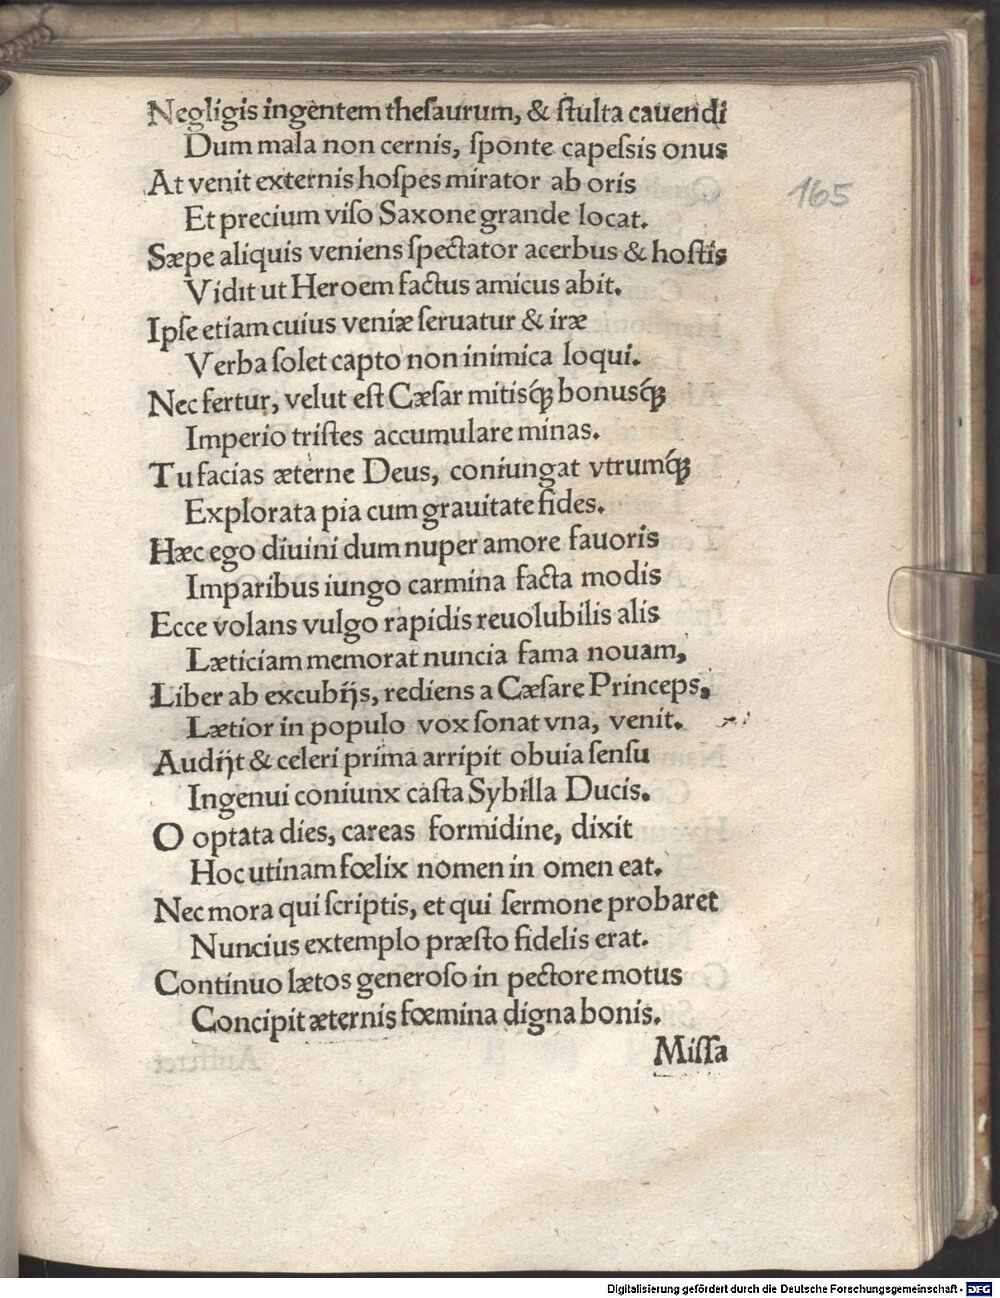 Negligis ingentem theſaurum, & ſtulta cauendi
Dum mala non cernis, ſponte capeſsis onus
At venit externis hoſpes mirator ab oris
Et precium viſo Saxone grande locat.
Sæpe aliquis veniens ſpectator acerbus & hoſtis
Vidit ut Heroem factus amicus abit.
Ipſe etiam cuius veniæ ſeruatur & iræ
Verba ſolet capto non inimica loqui.
Nec fertur, velut eſt Cæſar mitisq́ꝫ bonusq́ꝫ
Imperio triſtes accumulare minas.
Tu facias æterne Deus, coniungat vtrumq́ꝫ
Explorata pia cum grauitate fides.
Hæc ego diuini dum nuper amore fauoris
Imparibus iungo carmina facta modis
Ecce volans vulgo rapidis reuolubilis alis
Læticiam memorat nuncia fama nouam,
Liber ab excubijs, rediens a Cæſare Princeps,
Lætior in populo vox ſonat vna, venit.
Audijt & celeri prima arripit obuia ſenſu
Ingenui coniunx caſta Sybilla Ducis.
O optata dies, careas formidine, dixit
Hoc utinam fœlix nomen in omen eat.
Nec mora qui ſcriptis, et qui ſermone probaret
Nuncius extemplo præſto fidelis erat.
Continuo lætos generoſo in pectore motus
Concipit æternis fœmina digna bonis.
Miſſa
165
Digitalisierung gefördert durch die Deutsche Forschungsgemeinschaft - DFG